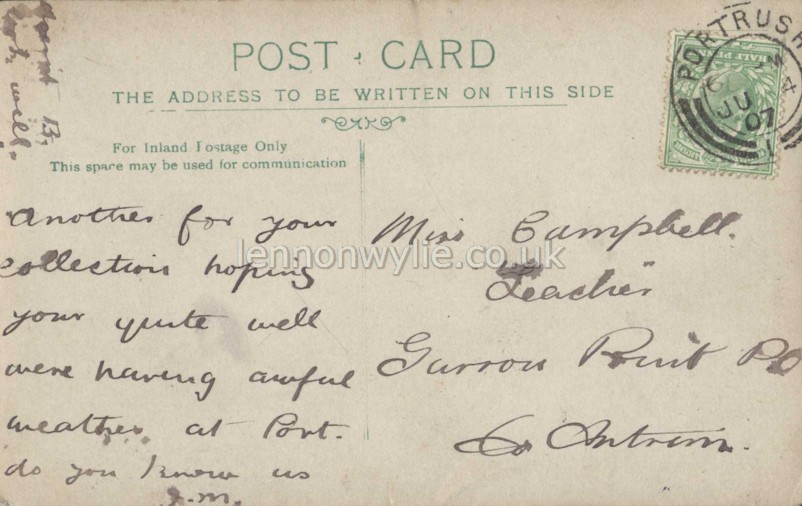 POST CARD
THE ADDRESS TO BE WRITTEN ON THIS SIDE
For Inland Postage Only
This space may be used for communication
PORTRUSH
JU
07
HALF PENNY
another for your
collection hoping
your quite well
were having awful
weather at Port.
do you know us
J.M.
Miss Campbell.
Teacher
Garron Point PO
Co Antrim.
B.
well.
lennonwylie.co.uk